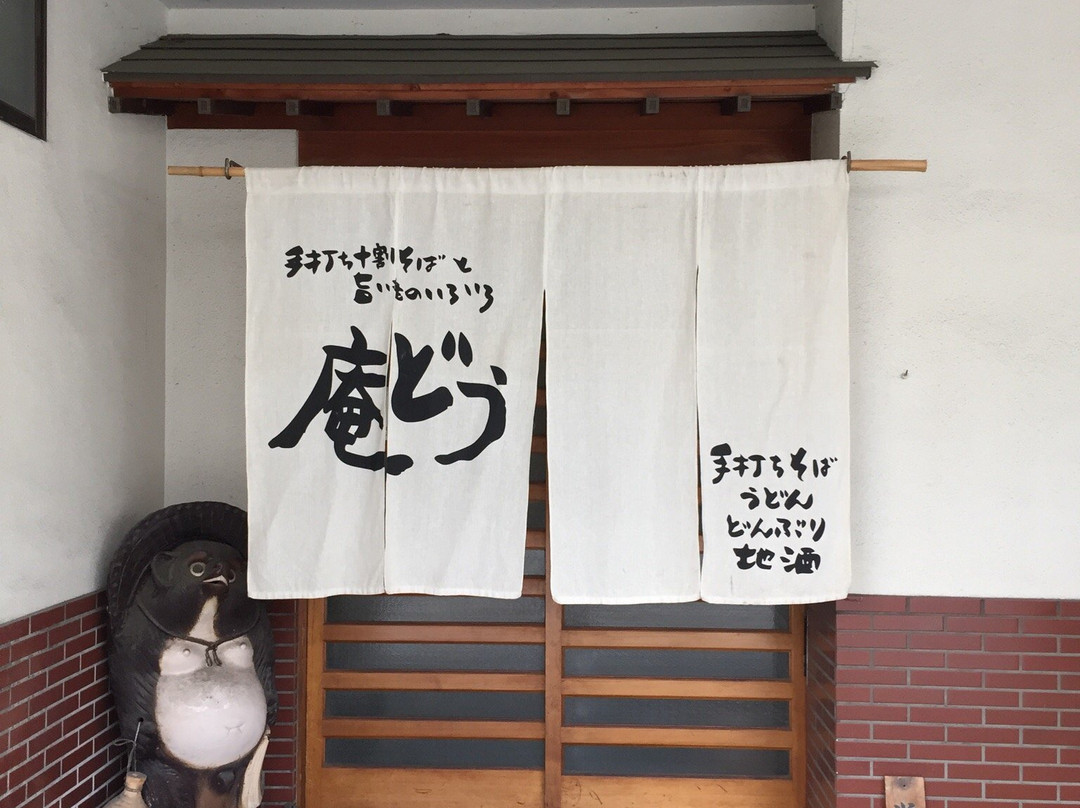 手打ち十割そばと
旨いものいろいろ
庵どう
手打ちそば
うどん
どんぶり
地酒